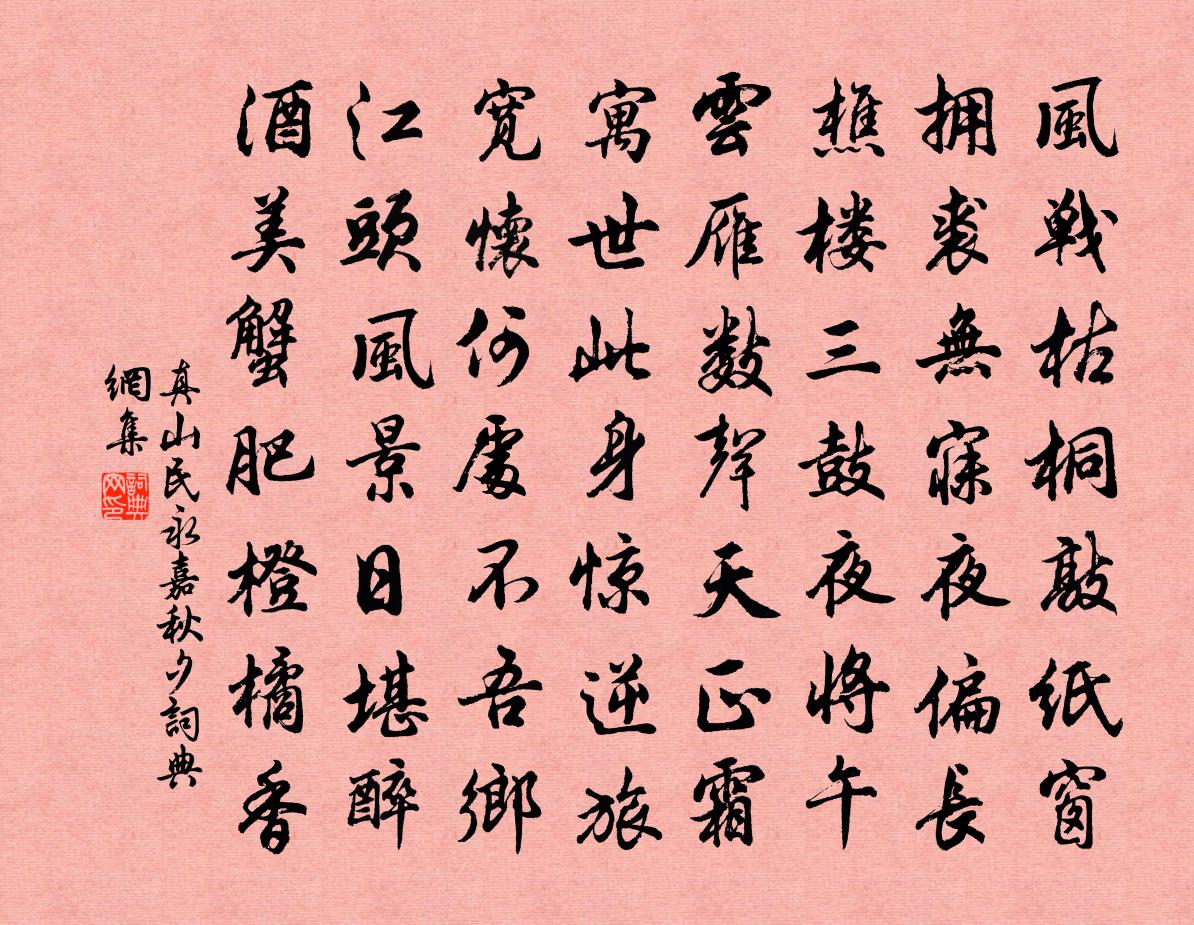 風戦枯桐敲紙窗
拥裘無寐夜偏長
樵楼三鼓夜將午
雲雁数聲天正霜
寓世此身惊逆旅
寬懷何處不吾鄉
江頭風景日堪醉
酒美蟹肥橙橘香
真山民永嘉秋夕詞典
網集
詞典
网印